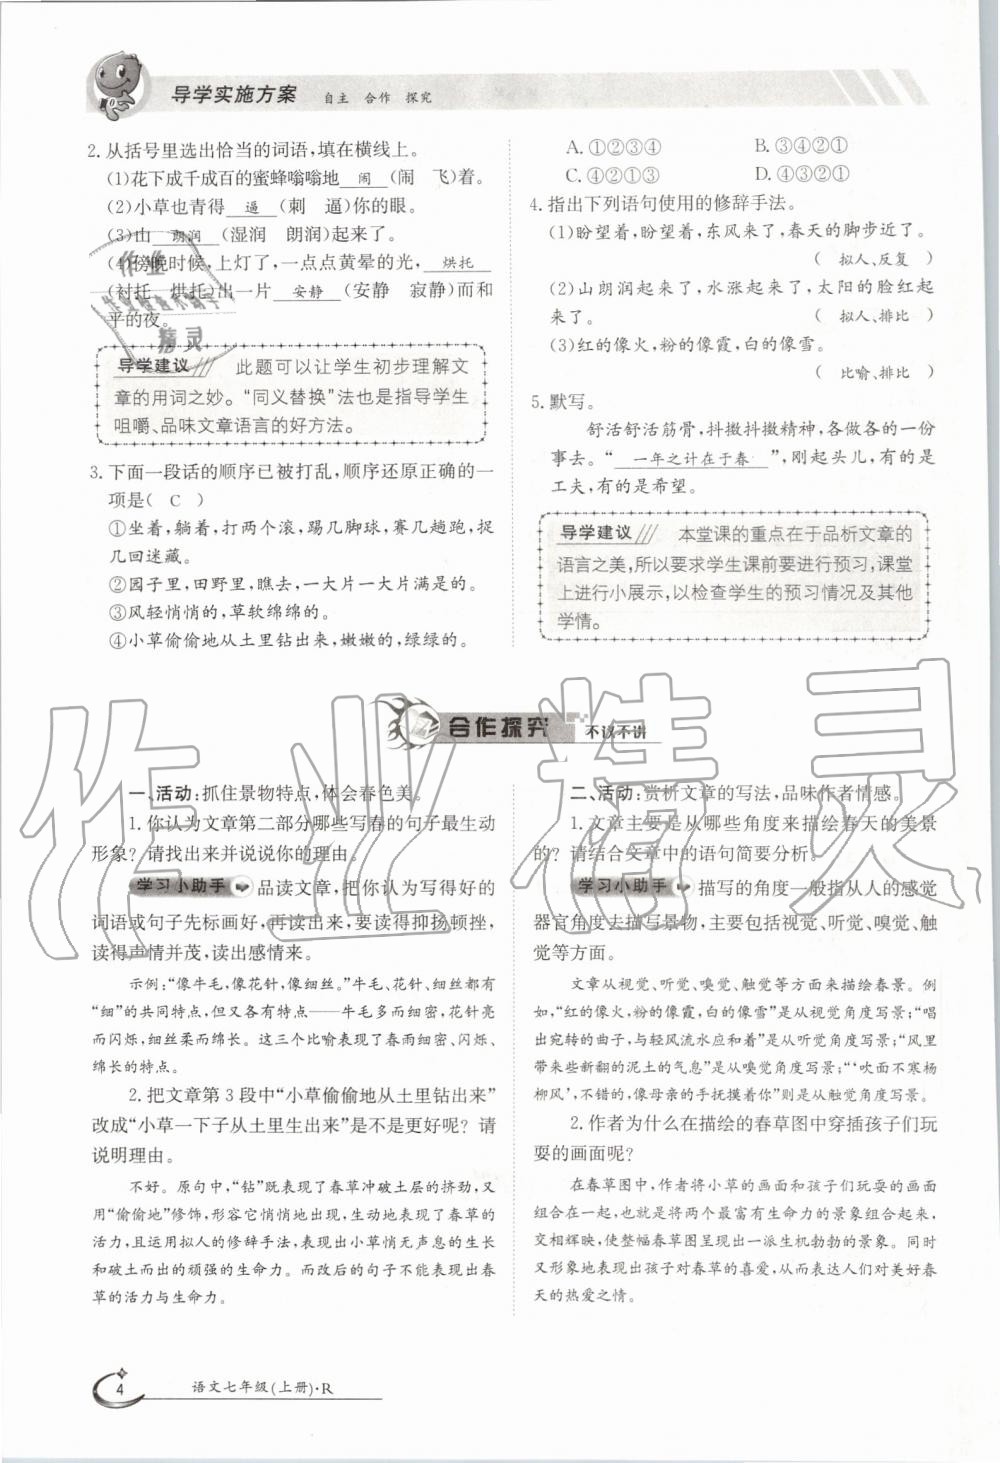 导学实施方案 自主 合作 探究
2.从括号里选出恰当的词语,填在横线上。
(1)花下成千成百的蜜蜂嗡嗡地 闹 (闹 飞)着。
(2)小草也青得 逼 (刺 逼)你的眼。
(3)山 朗润 (湿润 朗润)起来了。
(4)傍晚时候,上灯了,一点点黄晕的光, 烘托
(衬托 烘托)出一片 安静 (安静 寂静)而和
平的夜。
导学建议 此题可以让学生初步理解文
章的用词之妙。“同义替换”法也是指导学生
咀嚼、品味文章语言的好方法。
3.下面一段话的顺序已被打乱,顺序还原正确的一
项是( C )
①坐着,躺着,打两个滚,踢几脚球,赛几趟跑,捉
几回迷藏。
②园子里,田野里,瞧去,一大片一大片满是的。
③风轻悄悄的,草软绵绵的。
④小草偷偷地从土里钻出来,嫩嫩的,绿绿的。
A.①②③④ B.③④②①
C.④②①③ D.④③②①
4.指出下列语句使用的修辞手法。
(1)盼望着,盼望着,东风来了,春天的脚步近了。
( 拟人、反复 )
(2)山朗润起来了,水涨起来了,太阳的脸红起
来了。 ( 拟人、排比 )
(3)红的像火,粉的像霞,白的像雪。
( 比喻、排比 )
5.默写。
舒活舒活筋骨,抖擞抖擞精神,各做各的一份
事去。“ 一年之计在于春 ”,刚起头儿,有的是
工夫,有的是希望。
导学建议 本堂课的重点在于品析文章的
语言之美,所以要求学生课前要进行预习,课堂
上进行小展示,以检查学生的预习情况及其他
学情。
合作探究 不议不讲
一、活动:抓住景物特点,体会春色美。
1.你认为文章第二部分哪些写春的句子最生动
形象?请找出来并说说你的理由。
学习小助手 品读文章,把你认为写得好的
词语或句子先标画好,再读出来,要读得抑扬顿挫,
读得声情并茂,读出感情来。
示例:“像牛毛,像花针,像细丝。”牛毛、花针、细丝都有
“细”的共同特点,又各有特点——牛毛多而细密,花针亮
而闪烁,细丝柔而绵长。这三个比喻表现了春雨细密、闪烁、
绵长的特点。
2.把文章第3段中“小草偷偷地从土里钻出来”
改成“小草一下子从土里生出来”是不是更好呢?请
说明理由。
不好。原句中,“钻”既表现了春草冲破土层的挤劲,又
用“偷偷地”修饰,形容它悄悄地出现,生动地表现了春草的
活力,且运用拟人的修辞手法,表现出小草悄无声息的生长
和破土而出的顽强的生命力。而改后的句子不能表现出春
草的活力与生命力。
二、活动:赏析文章的写法,品味作者情感。
1.文章主要是从哪些角度来描绘春天的美景
的?请结合文章中的语句简要分析。
学习小助手 描写的角度一般指从人的感觉
器官角度去描写景物,主要包括视觉、听觉、嗅觉、触
觉等方面。
文章从视觉、听觉、嗅觉、触觉等方面来描绘春景。例
如,“红的像火,粉的像霞,白的像雪”是从视觉角度写景;“唱
出宛转的曲子,与轻风流水应和着”是从听觉角度写景;“风里
带来些新翻的泥土的气息”是从嗅觉角度写景;“‘吹面不寒杨
柳风’,不错的,像母亲的手抚摸着你”则是从触觉角度写景。
2.作者为什么在描绘的春草图中穿插孩子们玩
耍的画面呢?
在春草图中,作者将小草的画面和孩子们玩耍的画面
组合在一起,也就是将两个最富有生命力的景象组合起来,
交相辉映,使整幅春草图呈现出一派生机勃勃的景象。同时
又形象地表现出孩子对春草的喜爱,从而表达人们对美好春
天的热爱之情。
4 语文七年级(上册)·R
作业精灵
作业
精灵